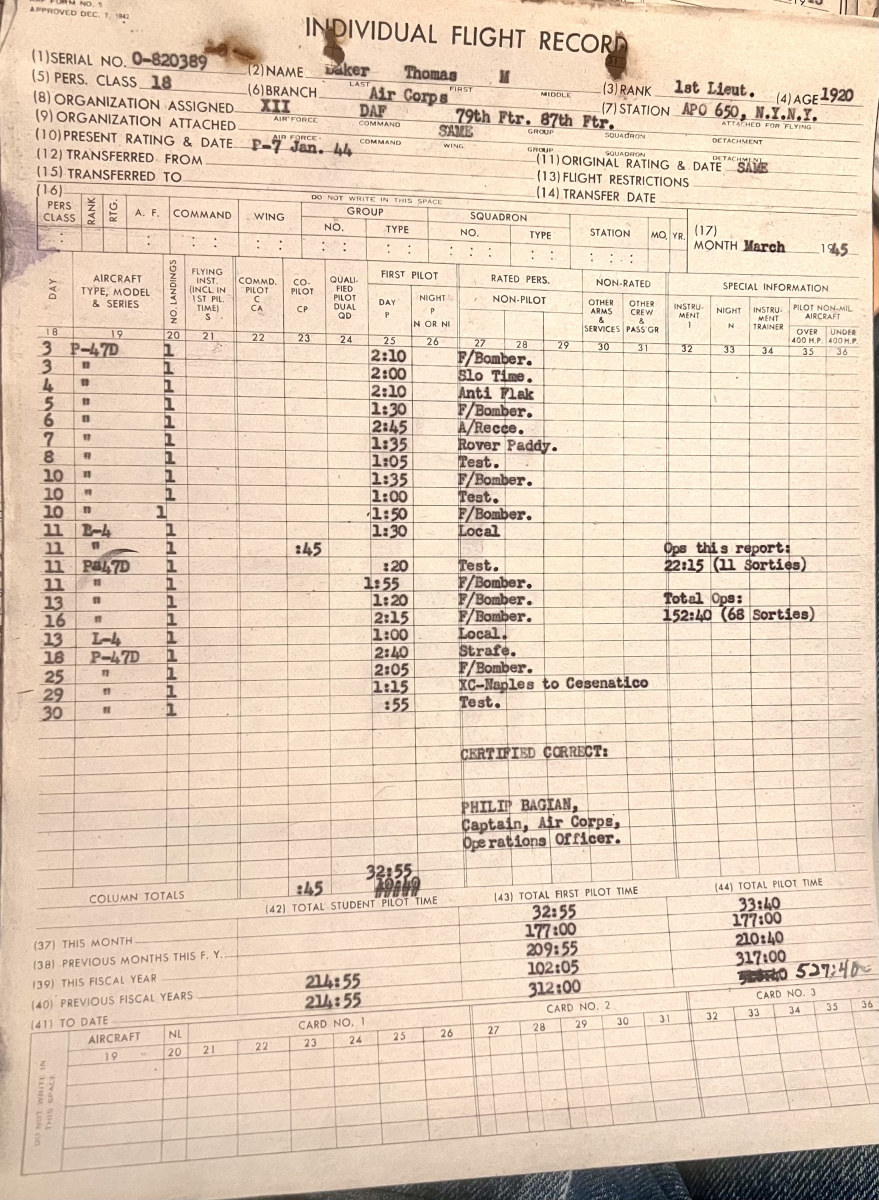 FORM NO. 5
APPROVED DEC. 7, 1942
INDIVIDUAL FLIGHT RECORD
(1) SERIAL NO. O-820389 (2) NAME Baker Thomas M (3) RANK 1st Lieut. (4) AGE 1920
LAST FIRST MIDDLE
(5) PERS. CLASS 18 (6) BRANCH Air Corps (7) STATION APO 650, N.Y.N.Y.
(8) ORGANIZATION ASSIGNED XII DAF 79th Ftr. 87th Ftr.
AIR FORCE COMMAND WING GROUP SQUADRON DETACHMENT
ATTACHED FOR FLYING
(9) ORGANIZATION ATTACHED SAME
AIR FORCE COMMAND WING GROUP SQUADRON DETACHMENT
(10) PRESENT RATING & DATE P-7 Jan. 44 (11) ORIGINAL RATING & DATE SAME
(12) TRANSFERRED FROM (13) FLIGHT RESTRICTIONS
(15) TRANSFERRED TO (14) TRANSFER DATE
(16) DO NOT WRITE IN THIS SPACE
PERS CLASS RANK RTG. A. F. COMMAND WING GROUP NO. TYPE SQUADRON NO. TYPE STATION MO. YR. (17) MONTH March 1945
DAY AIRCRAFT TYPE, MODEL & SERIES NO. LANDINGS FLYING INST. (INCL. IN 1ST PIL. TIME) S COMMD. PILOT C CA CO-PILOT CP QUALI-FIED PILOT DUAL QD FIRST PILOT DAY P NIGHT P N OR NI RATED PERS. NON-PILOT NON-RATED OTHER ARMS & SERVICES OTHER CREW & PASS'GR SPECIAL INFORMATION INSTRU-MENT I NIGHT N INSTRU-MENT TRAINER PILOT NON-MIL. AIRCRAFT OVER 400 H.P. UNDER 400 H.P.
18 19 20 21 22 23 24 25 26 27 28 29 30 31 32 33 34 35 36
3 P-47D 1 2:10 F/Bomber.
3 " 1 2:00 Slo Time.
4 " 1 2:10 Anti Flak
5 " 1 1:30 F/Bomber.
6 " 1 2:45 A/Recce.
7 " 1 1:35 Rover Paddy.
8 " 1 1:05 Test.
10 " 1 1:35 F/Bomber.
10 " 1 1:00 Test.
10 " 1 1:50 F/Bomber.
11 B-4 1 1:30 Local
11 " 1 :45 Ops this report:
11 P-47D 1 :20 Test. 22:15 (11 Sorties)
11 " 1 1:55 F/Bomber.
13 " 1 1:20 F/Bomber. Total Ops:
16 " 1 2:15 F/Bomber. 152:40 (68 Sorties)
13 L-4 1 1:00 Local.
18 P-47D 1 2:40 Strafe.
25 " 1 2:05 F/Bomber.
29 " 1 1:15 XC-Naples to Cesenatico
30 " 1 :55 Test.
CERTIFIED CORRECT:
PHILIP BAGIAN,
Captain, Air Corps,
Operations Officer.
32:55
COLUMN TOTALS :45
(42) TOTAL STUDENT PILOT TIME (43) TOTAL FIRST PILOT TIME (44) TOTAL PILOT TIME
(37) THIS MONTH 32:55 33:40
(38) PREVIOUS MONTHS THIS F. Y. 177:00 177:00
(39) THIS FISCAL YEAR 209:55 210:40
(40) PREVIOUS FISCAL YEARS 214:55 102:05 317:00
(41) TO DATE 214:55 312:00 527:40
AIRCRAFT NL CARD NO. 1 CARD NO. 2 CARD NO. 3
19 20 21 22 23 24 25 26 27 28 29 30 31 32 33 34 35 36
DO NOT WRITE IN THIS SPACE